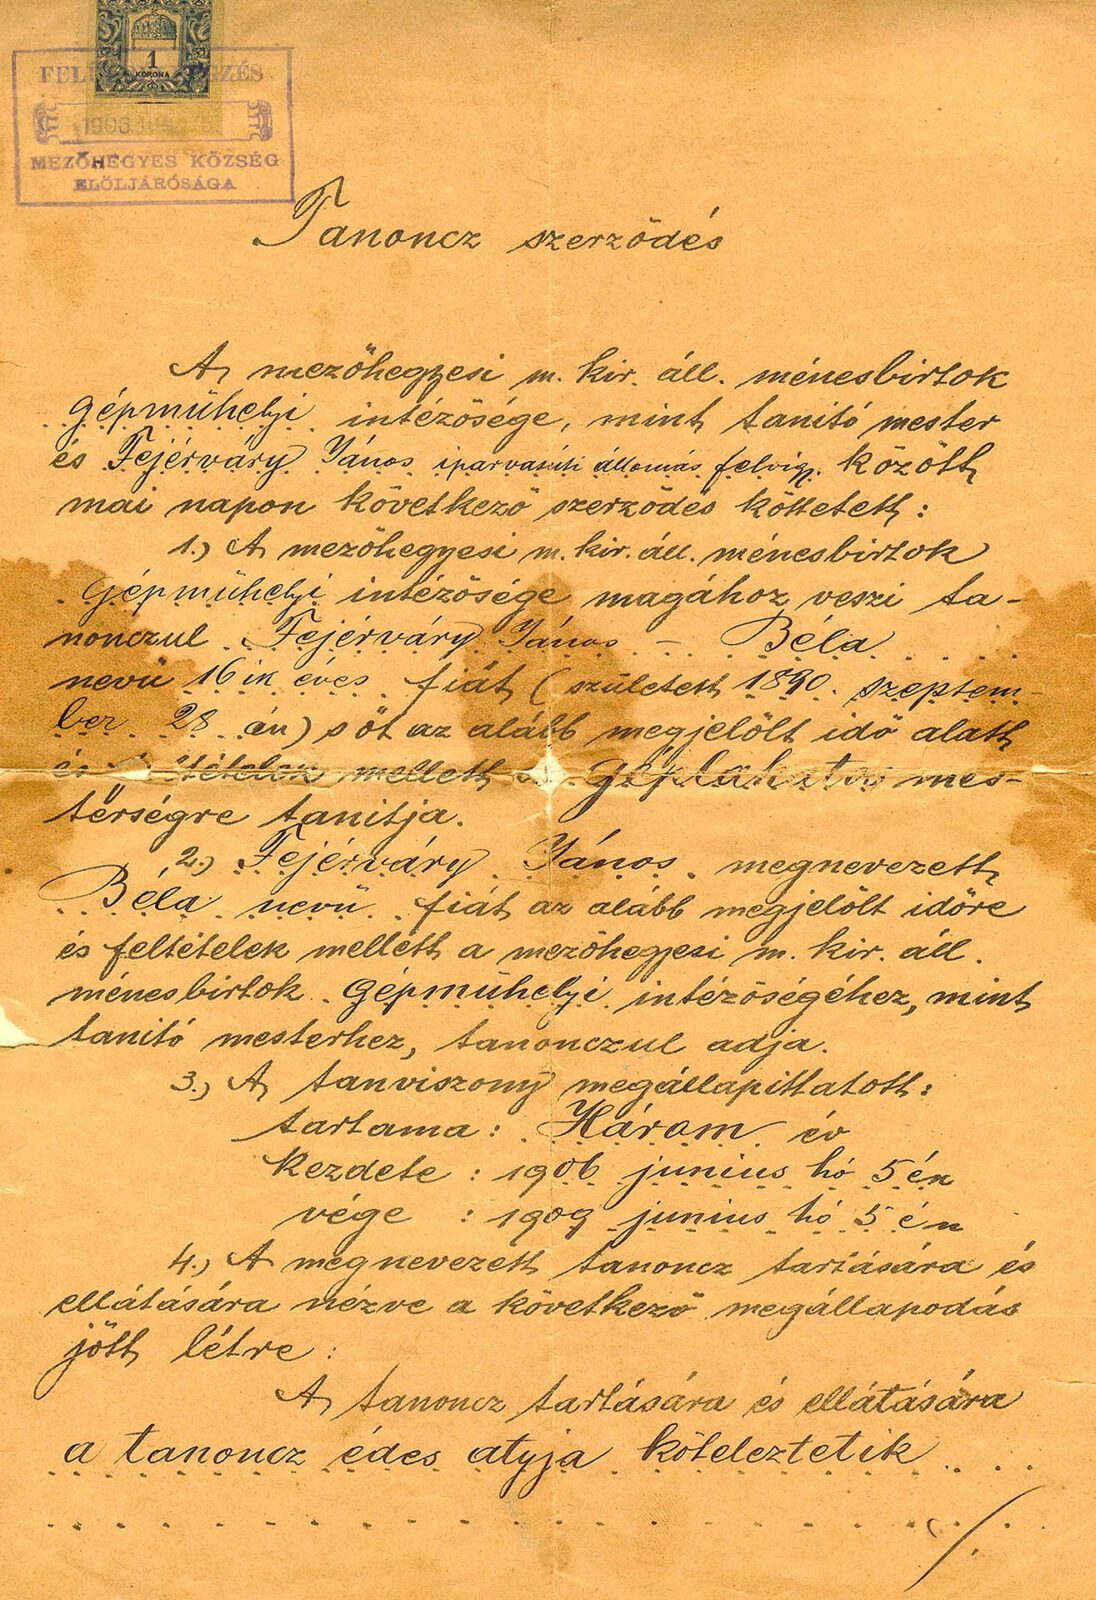 1
KORONA
1906
MEZŐHEGYES KÖZSÉG
ELÖLJÁRÓSÁGA
Tanoncz szerződés
A mezőhegyesi m. kir. áll. ménesbirtok
Gépműhelyi intézősége, mint tanitó mester
és Fejérváry János iparvasúti állomás felvigy. között
mai napon következő szerződés köttetett:
1.) A mezőhegyesi m. kir. áll. ménesbirtok
Gépműhelyi intézősége magához veszi ta-
nonczul Fejérváry János - Béla
nevü 16 ik éves fiát (született 1890. szeptem-
ber 28 án) s őt az alább megjelölt idő alatt
és mellett a géplakatos mes-
terségre tanitja.
2.) Fejérváry János megnevezett
Béla nevü fiát az alább megjelölt időre
és feltételek mellett a mezőhegyesi m. kir. áll.
ménesbirtok Gépműhelyi intézőségéhez, mint
tanitó mesterhez, tanonczul adja.
3.) A tanviszony megállapittatott:
tartama: Három év
kezdete: 1906 junius hó 5 én
vége: 1909 junius hó 5 én
4.) A megnevezett tanoncz tartására és
ellátására nézve a következő megállapodás
jött létre:
A tanoncz tartására és ellátására
a tanoncz édes atyja köteleztetik
./.